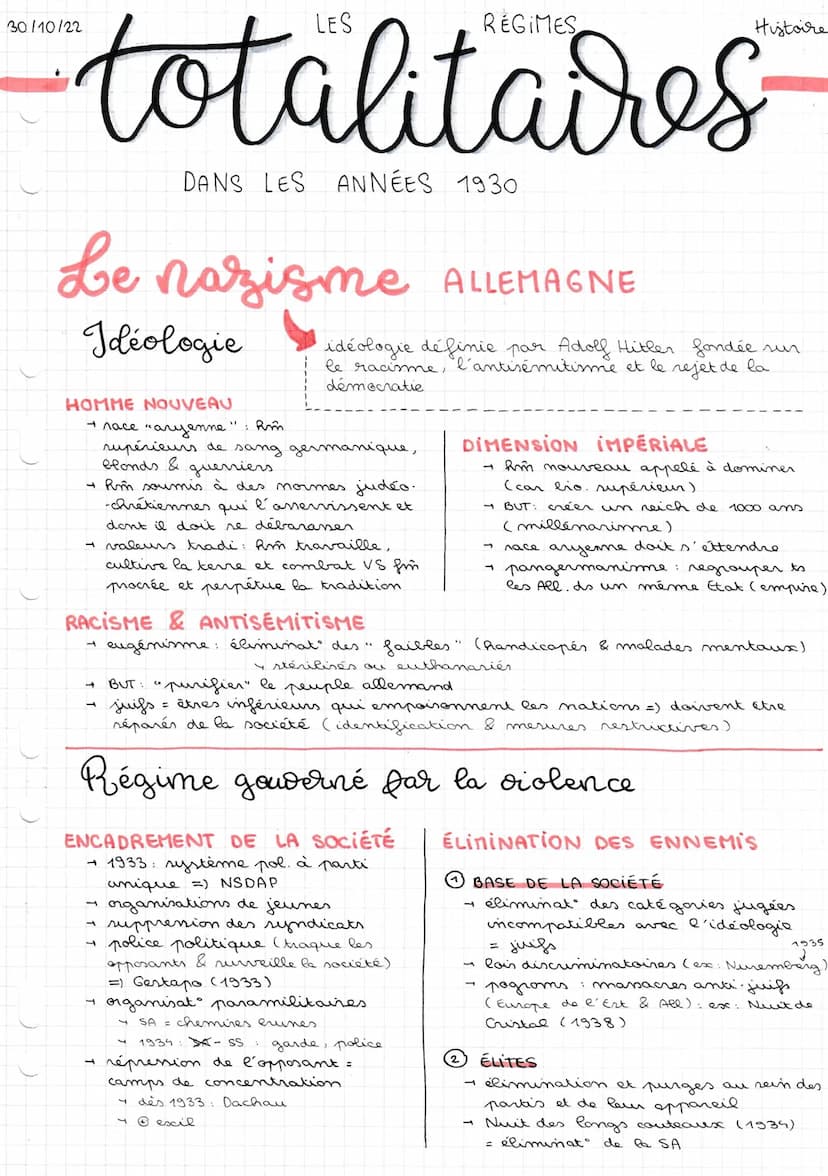 30/10/22 LES RÉGIMES Histoire
totalitaires
DANS LES ANNÉES 1930
Le nazisme ALLEMAGNE
Idéologie
idéologie définie par Adolf Hitler fondée sur
le racisme, l'antisémitisme et le rejet de la
démocratie
HOMME NOUVEAU
→ race "aryenne" : hm̄
supérieurs de sang germanique,
blonds & guerriers
→ hm̄ soumis à des normes judéo-
-chrétiennes qui l'asservissent et
dont il doit se débarasser
→ valeurs tradi : hm̄ travaille,
cultive la terre et combat VS fm̄
procrée et perpétue la tradition
DIMENSION IMPÉRIALE
→ hm̄ nouveau appelé à dominer
(car bio. supérieur)
→ BUT : créer un reich de 1000 ans
(millénarisme)
→ race aryenne doit s'éttendre
→ pangermanisme : regrouper ts
les All. ds un même Etat (empire)
RACISME & ANTISÉMITISME
→ eugénisme : éliminat° des "faibles" (handicapés & malades mentaux)
↳ stérilisés ou euthanasiés
→ BUT : "purifier" le peuple allemand
→ juifs = êtres inférieurs qui empoisonnent les nations => doivent être
séparés de la société (identification & mesures restrictives)
Régime gouverné par la violence
ENCADREMENT DE LA SOCIÉTÉ
→ 1933 : système pol. à parti
unique => NSDAP
→ organisations de jeunes
→ suppression des syndicats
→ police politique (traque les
opposants & surveille la société)
=> Gestapo (1933)
→ organisat° paramilitaires
↳ SA = chemises brunes
↳ 1934 : SA - SS : garde, police
→ répression de l'opposant =
camps de concentration
↳ dès 1933 : Dachau
↳ exil
ÉLIMINATION DES ENNEMIS
① BASE DE LA SOCIÉTÉ
→ éliminat° des catégories jugées
incompatibles avec l'idéologie
= juifs
1935
→ lois discriminatoires (ex : Nuremberg)
→ pogroms : massacres anti-juifs
(Europe de l'Est & All) : ex : Nuit de
Cristal (1938)
② ÉLITES
→ élimination et purges au sein des
partis et de leur appareil
→ Nuit des longs couteaux (1934)
= éliminat° de la SA